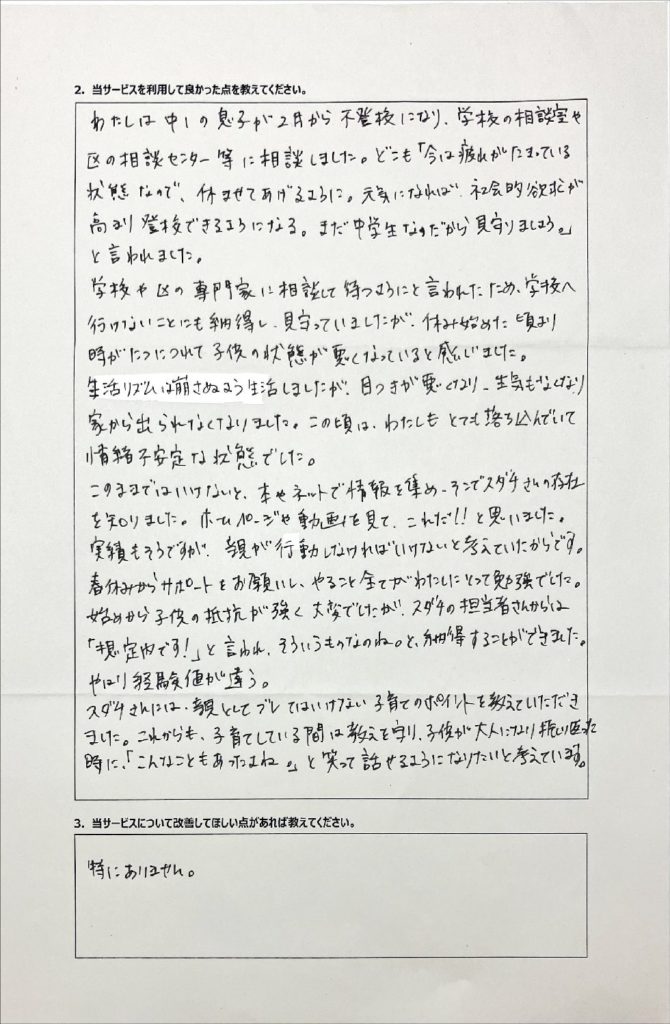 2. 当サービスを利用して良かった点を教えてください。
わたしは中1の息子が2月から不登校になり、学校の相談室や
区の相談センター等に相談しました。どこも「今は疲れがたまっている
状態なので、休ませてあげるように。元気になれば、社会的欲求が
高まり登校できるようになる。まだ中学生なのだから見守りましょう。」
と言われました。
学校や区の専門家に相談して待つようにと言われたため、学校へ
行けないことにも納得し、見守っていましたが、休み始めた頃より
時がたつにつれて子供の状態が悪くなっていると感じました。
生活リズムは崩さぬよう生活しましたが、目つきが悪くなり、生気もなくなり
家から出られなくなりました。この頃は、わたしもとても落ち込んでいて
情緒不安定な状態でした。
このままではいけないと、本やネットで情報を集め、そこでスダチさんの存在
を知りました。ホームページや動画を見て、これだ!!と思いました。
実績もそうですが、親が行動しなければいけないと考えていたからです。
春休みからサポートをお願いし、やること全てがわたしにとって勉強でした。
始めから子供の抵抗が強く大変でしたが、スダチの担当者さんからは
「想定内です!」と言われ、そういうものなのね。と、納得することができました。
やはり経験値が違う。
スダチさんには、親としてブレてはいけない子育てのポイントを教えていただき
ました。これからも、子育てしている間は教えを守り、子供が大人になり振り返った
時に、「こんなこともあったよね。」と笑って話せるようになりたいと考えています。
3. 当サービスについて改善してほしい点があれば教えてください。
特にありません。